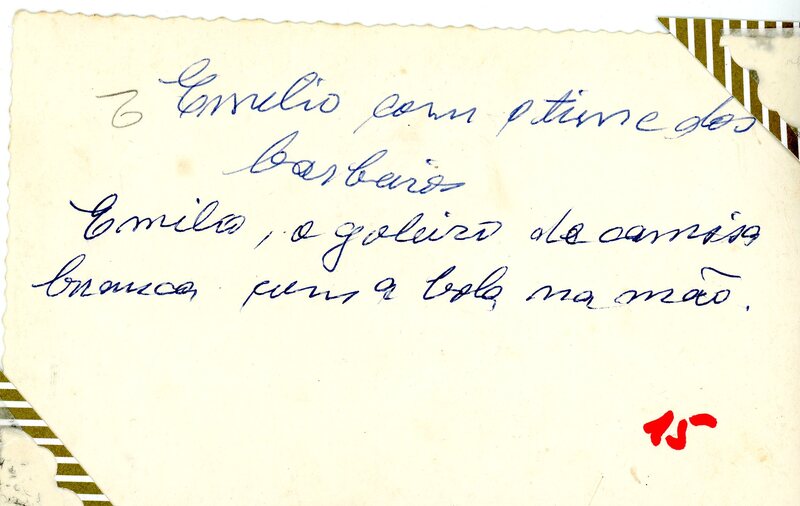 Emilio com o time dos
barbeiros
Emilio, o goleiro de camisa
branca com a bola na mão.
15